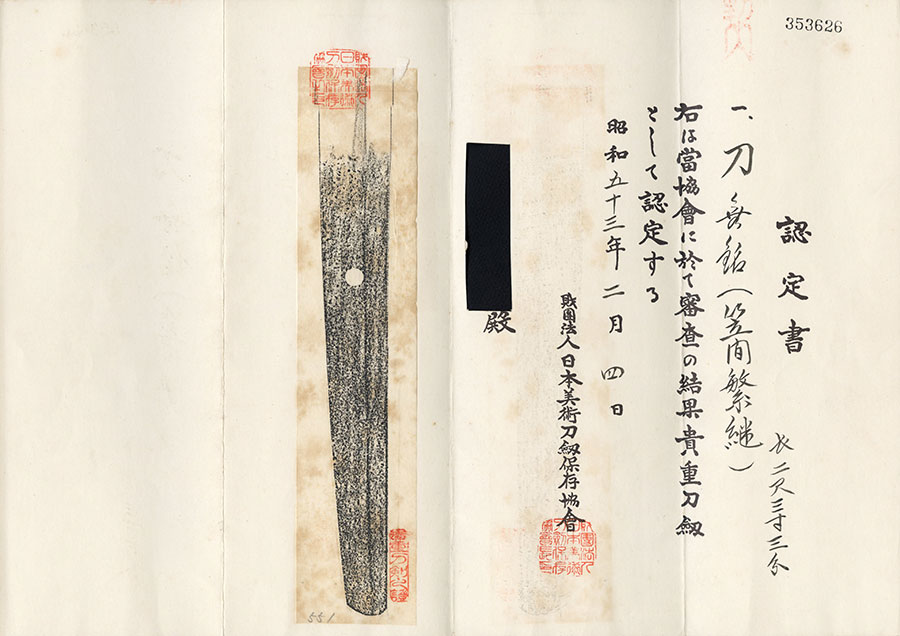 353626
認定書
一、刀 無銘(笠間繁継)
長二尺三寸三分
右は當協會に於て審査の結果貴重刀剱
として認定する
昭和五十三年二月四日
財團法人日本美術刀剱保存協會
殿
551